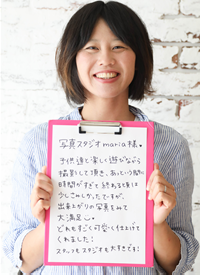 写真スタジオmaria様♥
子供達と楽しく遊びながら
撮影して頂き、あっという間に
時間がすぎて終わる頃は
少しさみしかったですが、
出来上がりの写真をみて
大満足
どれもすごく可愛く仕上げて
くれました!
スタッフもスタジオも大すきです!